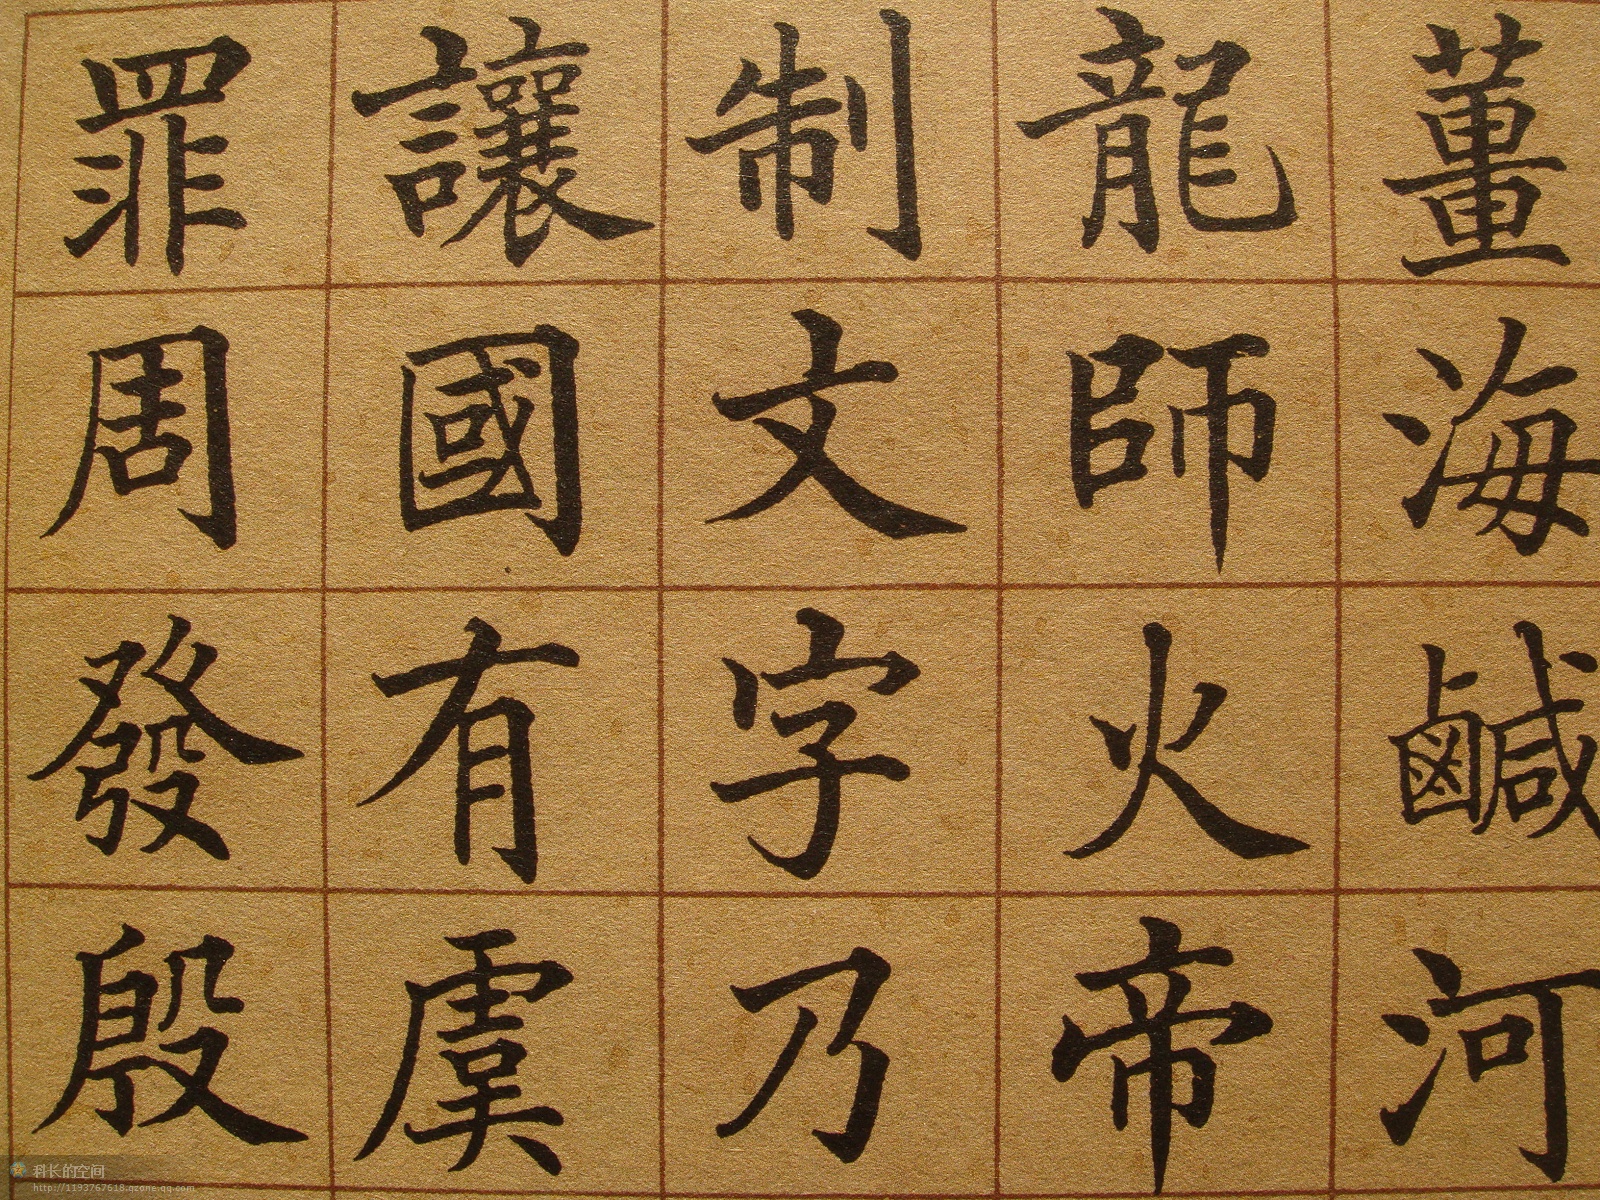 薑海鹹河
龍師火帝
制文字乃
讓國有虞
罪周發殷
科长的空间
http://1193767618.qzone.qq.com